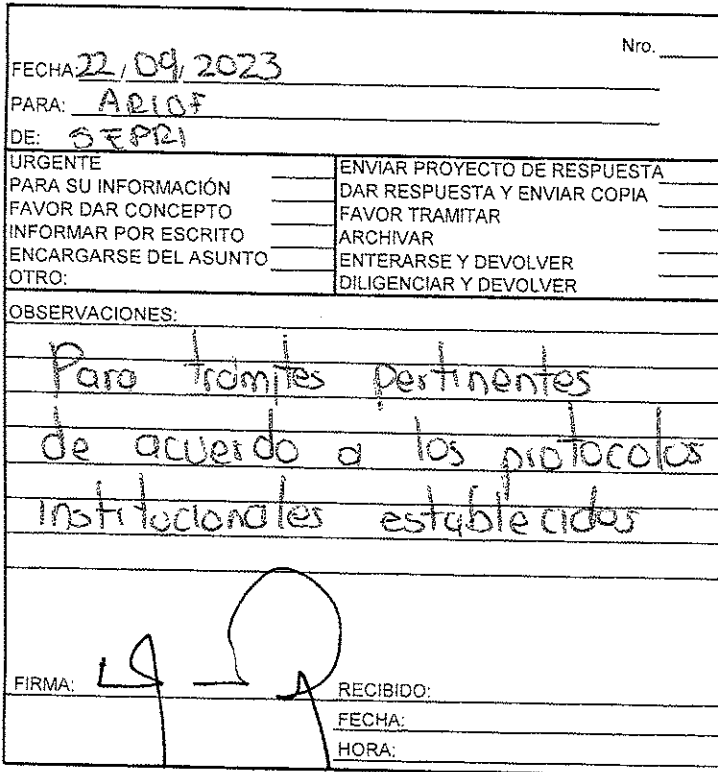 Nro.
FECHA: 22 / 09 / 2023
PARA: ARIOF
DE: SEPRI
URGENTE
PARA SU INFORMACIÓN
FAVOR DAR CONCEPTO
INFORMAR POR ESCRITO
ENCARGARSE DEL ASUNTO
OTRO:
ENVIAR PROYECTO DE RESPUESTA
DAR RESPUESTA Y ENVIAR COPIA
FAVOR TRAMITAR
ARCHIVAR
ENTERARSE Y DEVOLVER
DILIGENCIAR Y DEVOLVER
OBSERVACIONES:
Para trámites pertinentes
de acuerdo a los protocolos
institucionales establecidos
FIRMA:
RECIBIDO:
FECHA:
HORA: